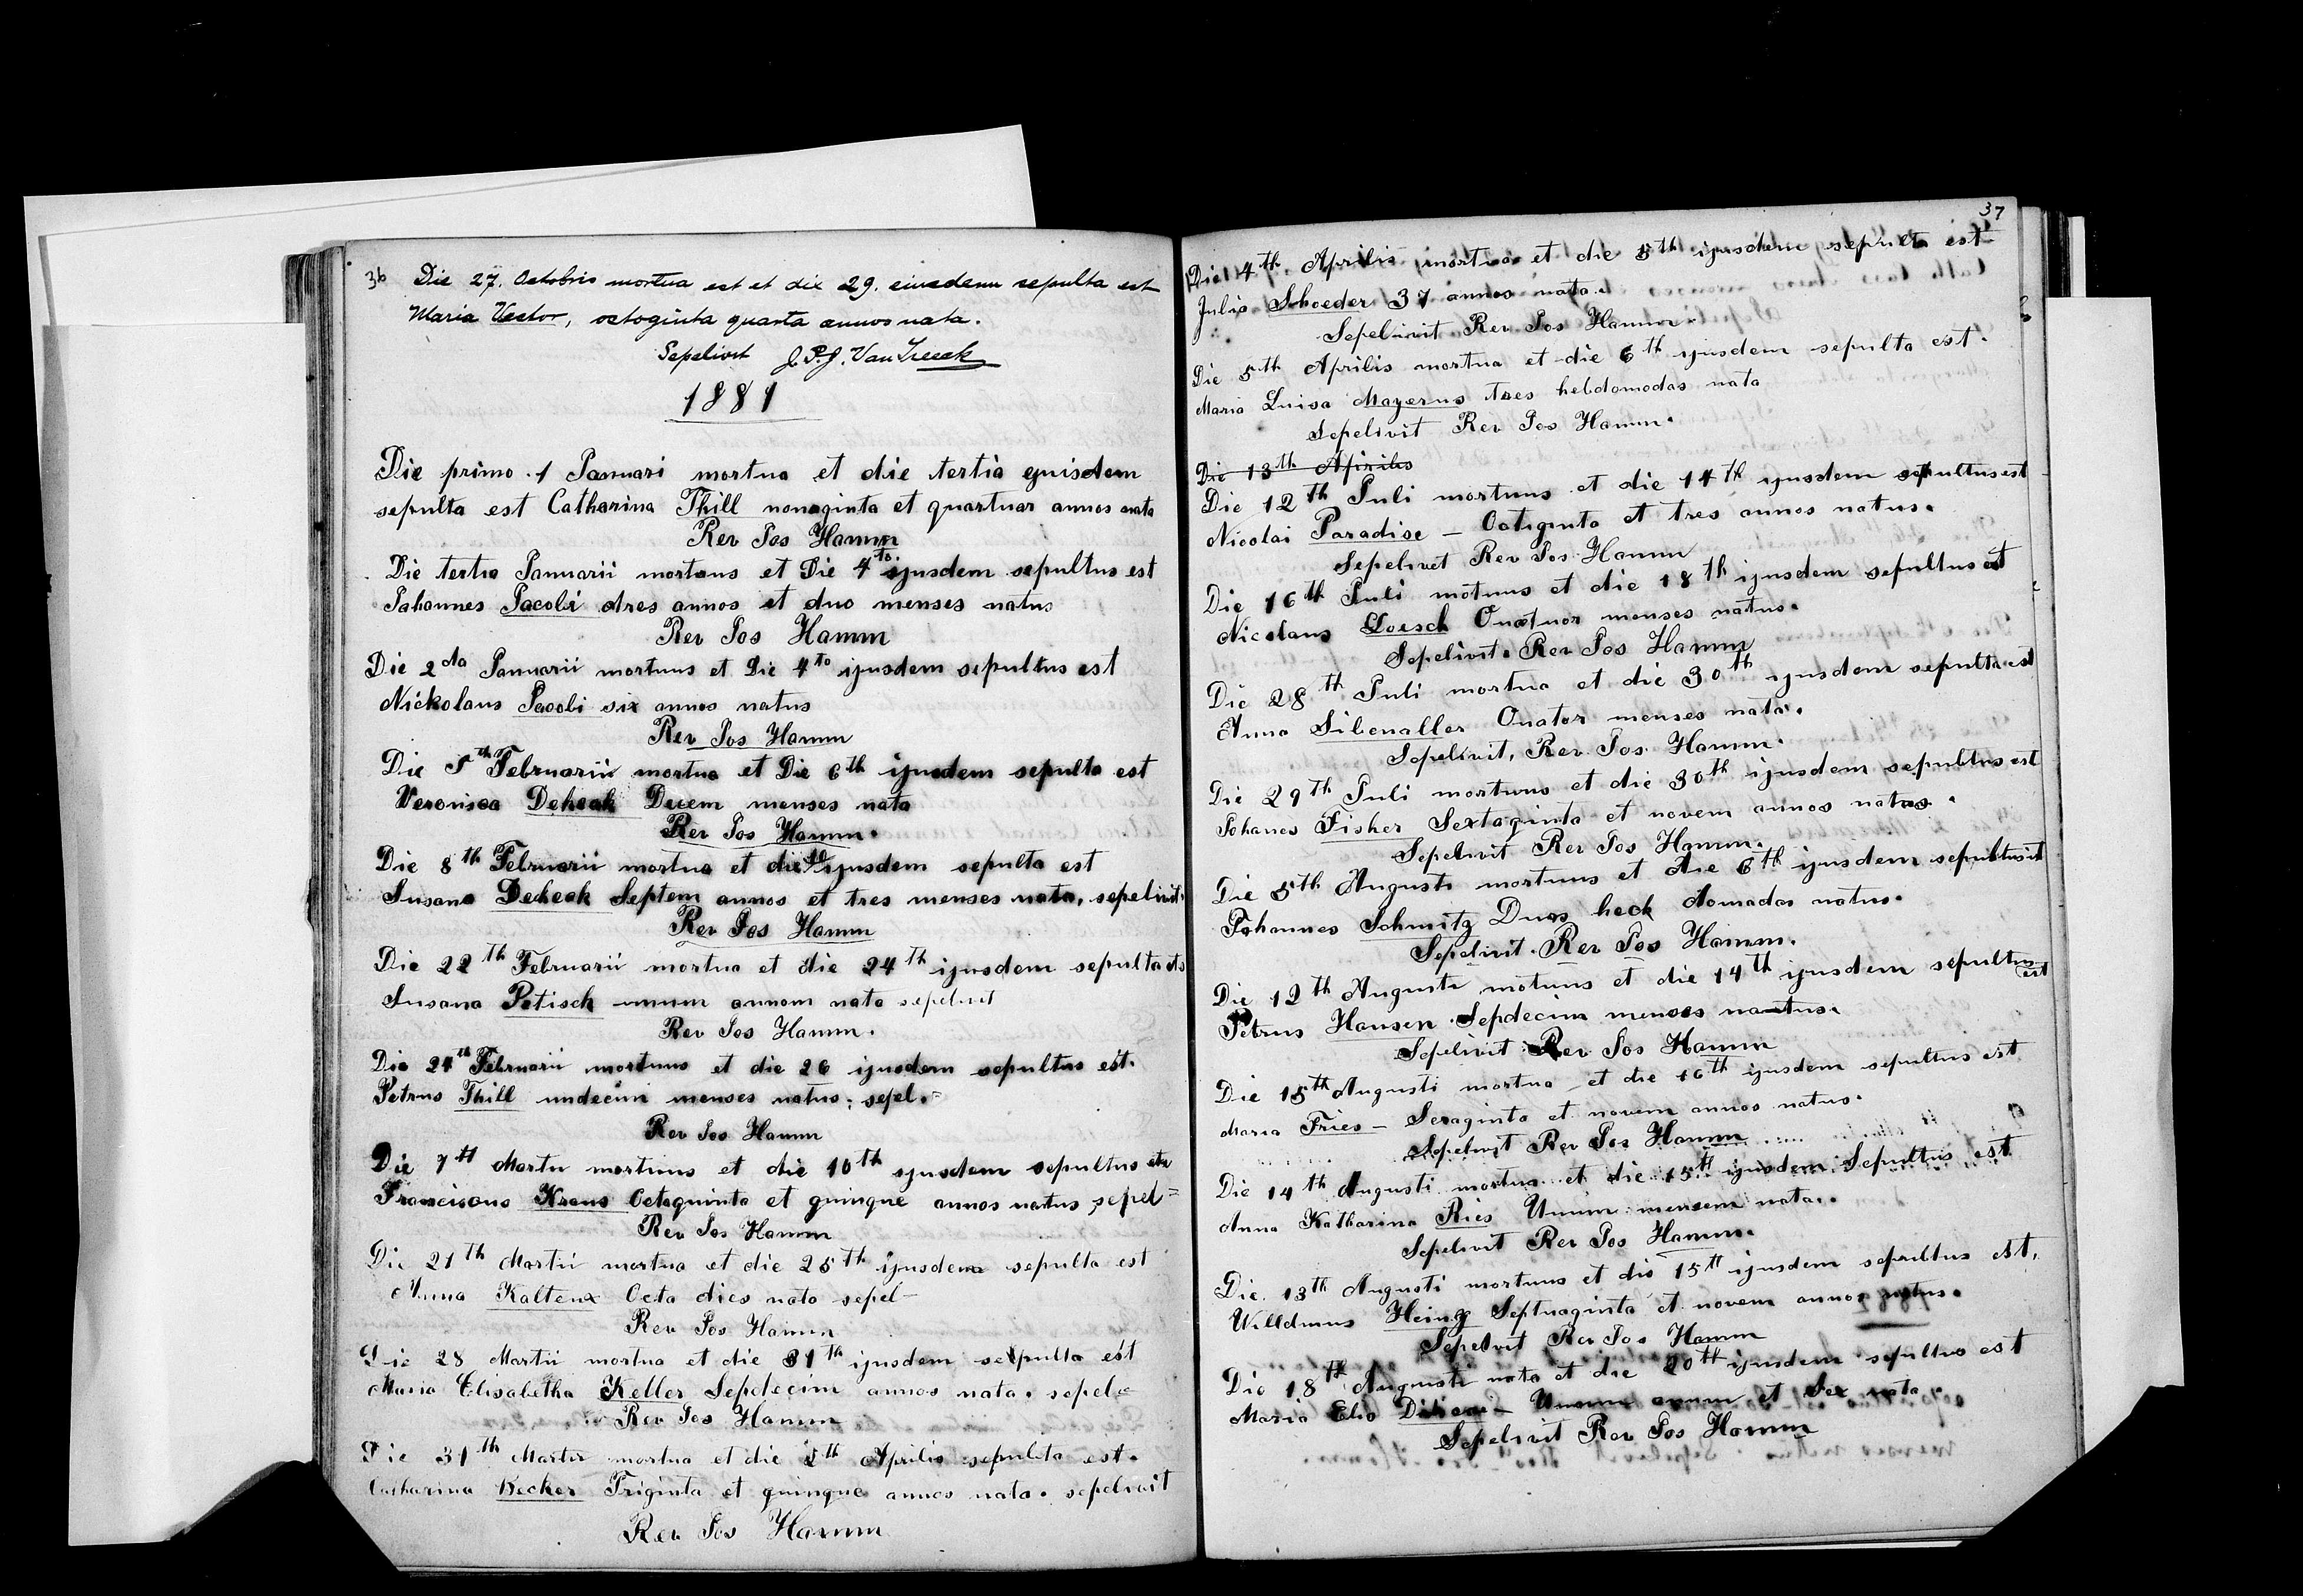 36 Die 27. Octobris mortua est et die 29. eiusdem sepulta est
Maria Vector, octoginta quarta annos nata.
Sepelivit J. P. J. Van Treeck
1881
Die primo 1 Januari mortua et die tertia ejuisdem
sepulta est Catharina Thill nonaginta et quartuar annos nata
Rev Jos Hamm
Die tertia Januarii mortuus et Die 4to ijusdem sepultus est
Johannes Jacobi dres annos et duo menses natus
Rev Jos Hamm
Die 2da Januarii mortuus et Die 4to ijusdem sepultus est
Nickolaus Jacobi six annos natus
Rev Jos Hamm
Die 5th Februarii mortua et Die 6th ijusdem sepulta est
Veronica Deheck Decem menses nata
Rev Jos Hamm.
Die 8th Februarii mortua et die ijusdem sepulta est
Susana Deheck Septem annos et tres menses nata, sepelivit
Rev Jos Hamm
Die 22th Februarii mortua et die 24th ijusdem sepulta
Susana Petisch unum annom nata sepelivit
Rev Jos Hamm.
Die 24th Februarii mortuus et die 26 ijusdem sepultus est.
Petrus Thill undecim menses natus; sepel.=
Rev Jos Hamm
Die 7th Martii mortuus et die 10th ijusdem sepultus
Franciscus Kraus Octoguinta et guingue annos natus sepel=
Rev Jos Hamm
Die 21th Martii mortua et die 25th ijusdem sepulta est
Anna Kaltenx Octa dies nata sepel-
Rev Jos Hamm
Die 28 Martii mortua et die 31th ijusdem sepulta est
Maria Elisabetha Keller Sepdecim annos nata. sepel=
Rev Jos Hamm
Die 31th Martii mortua et die 2th Aprilis sepulta est.
Catharina Becker Triginta et guingue annos nata. sepelivit
Rev Jos Hamm
37
Die 4th Aprilis mortua et die 5th ijusdem sepulta est
Julia Shoeder 37 annos nata.
Sepelivit Rev Jos Hamm.
Die 5th Aprilis mortua et die 6th ijusdem sepulta est.
Maria Luisa Mayerus tres hebdomodas nata
Sepelivit Rev Jos Hamm.
Die 13th Aprilis
Die 12th Juli mortuus et die 14th ijusdem sepultus est
Nicolai Paradise - Octiginta et tres annos natus.
Sepelivet Rev Jos Hamm
Die 16th Juli motuus et die 18th ijusdem sepultus est
Nicolaus Loesch Quatuor menses natus.
Sepelivit. Rev Jos Hamm
Die 28th Juli mortua et die 30th ijusdem sepulta est
Anna Sibenaller Quator menses nata.
Sepelivit, Rev Jos Hamm.
Die 29th Juli mortuus et die 30th ijusdem sepultus est
Johanes Fisher Sextaginta et novem annos natus.
Sepelivit Rev Jos Hamm.
Die 5th Augusti mortuus et die 6th ijusdem sepultus est
Johannes Schmitz Duas heck domadas natus.
Sepelivit. Rev Jos Hamm.
Die 12th Augusti motuus et die 14th ijusdem sepultus est
Petrus Hansen Sepdecim menses nautus.
Sepelivit Rev Jos Hamm
Die 15th Augusti mortua et die 16th ijusdem sepultus est
Maria Fries - Sexaginta et novem annos natus.
Sepelivit Rev Jos Hamm
Die 14th Augusti mortua et die 15th ijusdem Sepultus est
Anna Katharina Ries Unum mensem nata.
Sepelivit Rev Jos Hamm.
Die 13th Augusti mortuus et die 15th ijusdem sepultus est.
Willdmus Heing Septuaginta et novem annos natus.
Sepelivit Rev Jos Hamm
Die 18th Augusti nata et die 20th ijusdem sepultus est
Maria Unum annum et Sex nata.
Sepelivit Rev Jos Hamm